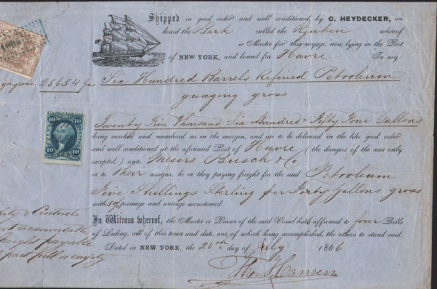 Shipped in good order and well conditioned, by C. HEYDECKER, on
board the Bark called the Reuben whereof
is Master for this voyage, now lying in the Port
of NEW YORK, and bound for Havre To say
gagron. 25654 Six Hundred Barrels Refined Petroleum
guaging gross
Twenty Five Thousand Six Hundred & Fifty Four Gallons
being marked and numbered as in the margin, and are to be delivered in the like good order
and well conditioned at the aforesaid Port of Havre (the dangers of the seas only
excepted,) unto Messrs Busch & Co
or to their assigns, he or they paying freight for the said Petroleum
Five Shillings Sterling for Forty Gallons gross
with 5% primage and average accustomed.
In Witness whereof, the Master or Purser of the said Vessel hath affirmed to four Bills
of Lading, all of this tenor and date, one of which being accomplished, the others to stand void.
Dated in NEW YORK, the 28th day of July 1866
freight payable
10 10